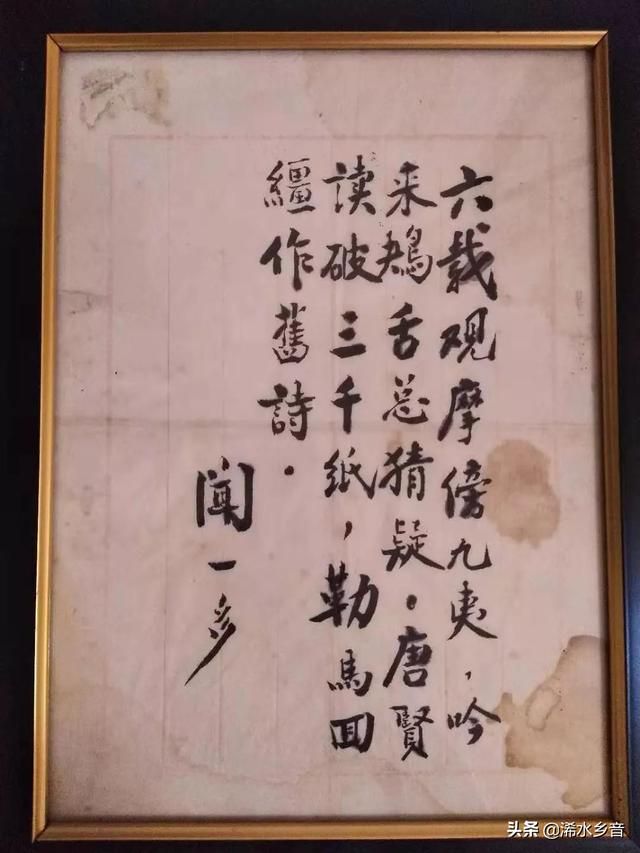 六載观摩傍九夷，吟
来鴂舌总猜疑。唐賢
读破三千纸，勒馬回
繮作舊詩。
闻一多
头条@浠水乡音